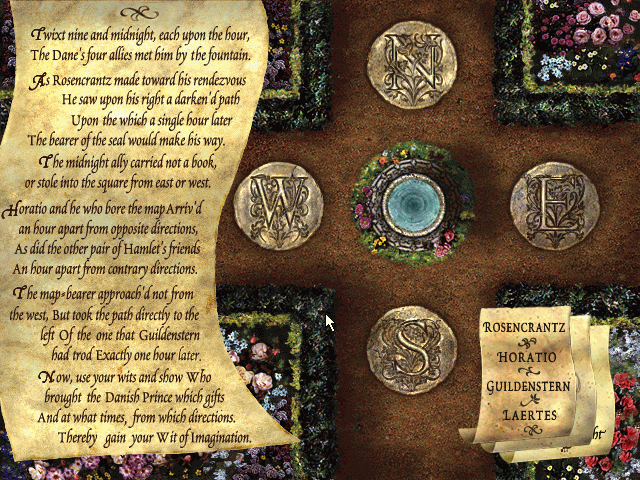 Twixt nine and midnight, each upon the hour,
The Dane's four allies met him by the fountain.
As Rosencrantz made toward his rendezvous
He saw upon his right a darken'd path
Upon the which a single hour later
The bearer of the seal would make his way.
The midnight ally carried not a book,
or stole into the square from east or west.
Horatio and he who bore the map Arriv'd
an hour apart from opposite directions,
As did the other pair of Hamlet's friends
An hour apart from contrary directions.
The map-bearer approach'd not from
the west, But took the path directly to the
left Of the one that Guildenstern
had trod Exactly one hour later.
Now, use your wits and show Who
brought the Danish Prince which gifts
And at what times, from which directions.
Thereby gain your Wit of Imagination.
N
W
E
S
Rosencrantz
Horatio
Guildenstern
Laertes